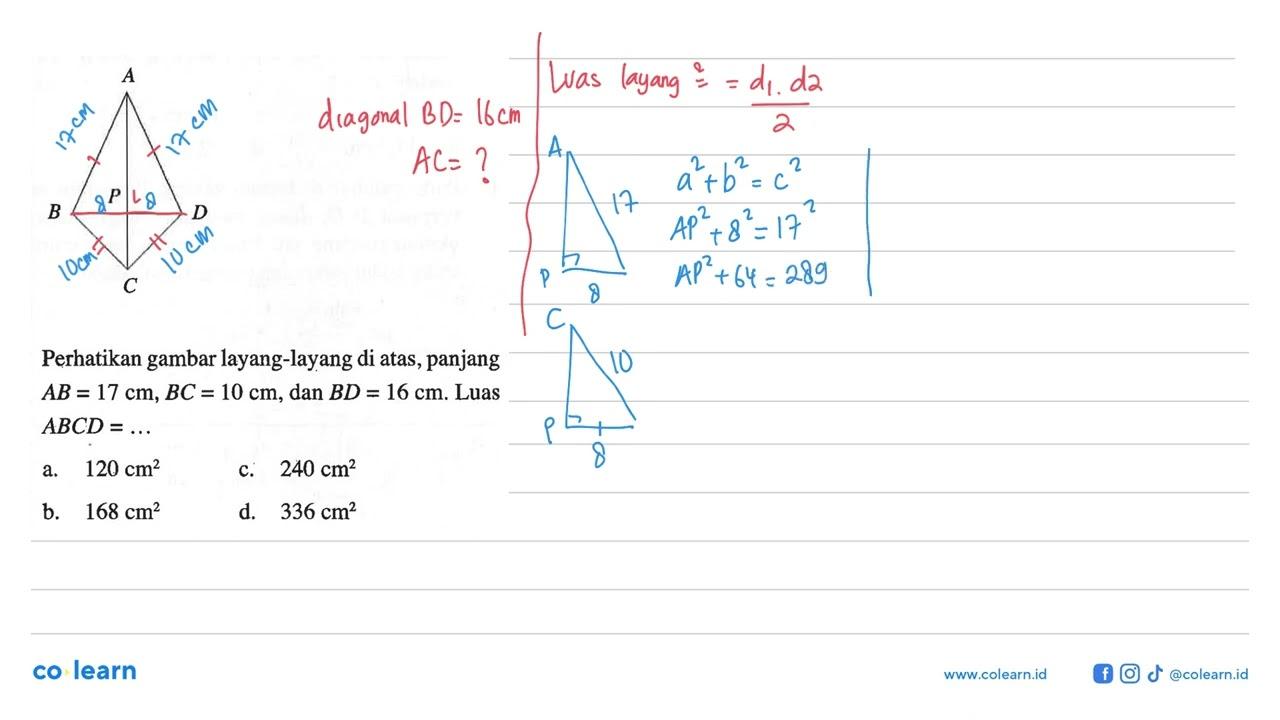 A
17 cm
17 cm
P
8
8
B
D
10 cm
10 cm
C
diagonal BD = 16 cm
AC = ?
Luas layang² = d₁ . d2
2
A
17
P
8
a² + b² = c²
AP² + 8² = 17²
AP² + 64 = 289
C
10
P
8
Perhatikan gambar layang-layang di atas, panjang
AB = 17 cm, BC = 10 cm, dan BD = 16 cm. Luas
ABCD = ...
a. 120 cm² c. 240 cm²
b. 168 cm² d. 336 cm²
co learn
www.colearn.id
@colearn.id